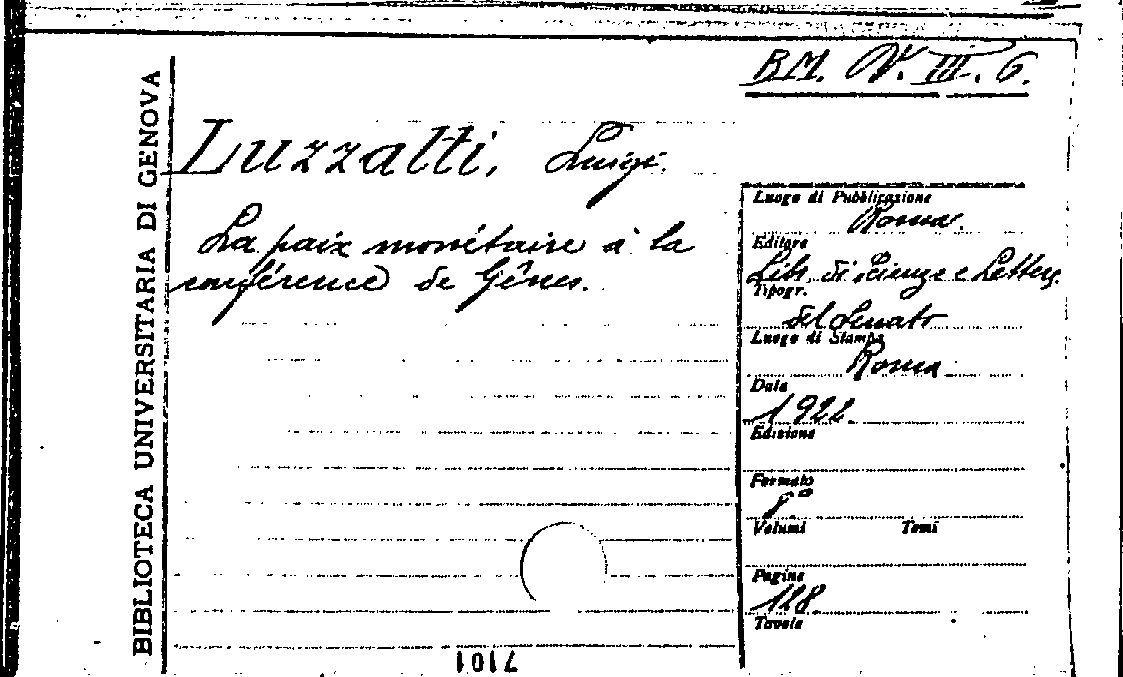 BIBLIOTECA UNIVERSITARIA DI GENOVA
BM. IV. III. 6.
Luzzatti, Luigi.
La paix monétaire à la
conférence de Gênes.
Luogo di Pubblicazione
Roma.
Editore
Libr. di Scienze e Lettere
Tipogr.
del Senato
Luogo di Stampa
Roma
Data
1922
Edizione
Formato
8°
Volumi Tomi
Pagine
128
Tavole
7101